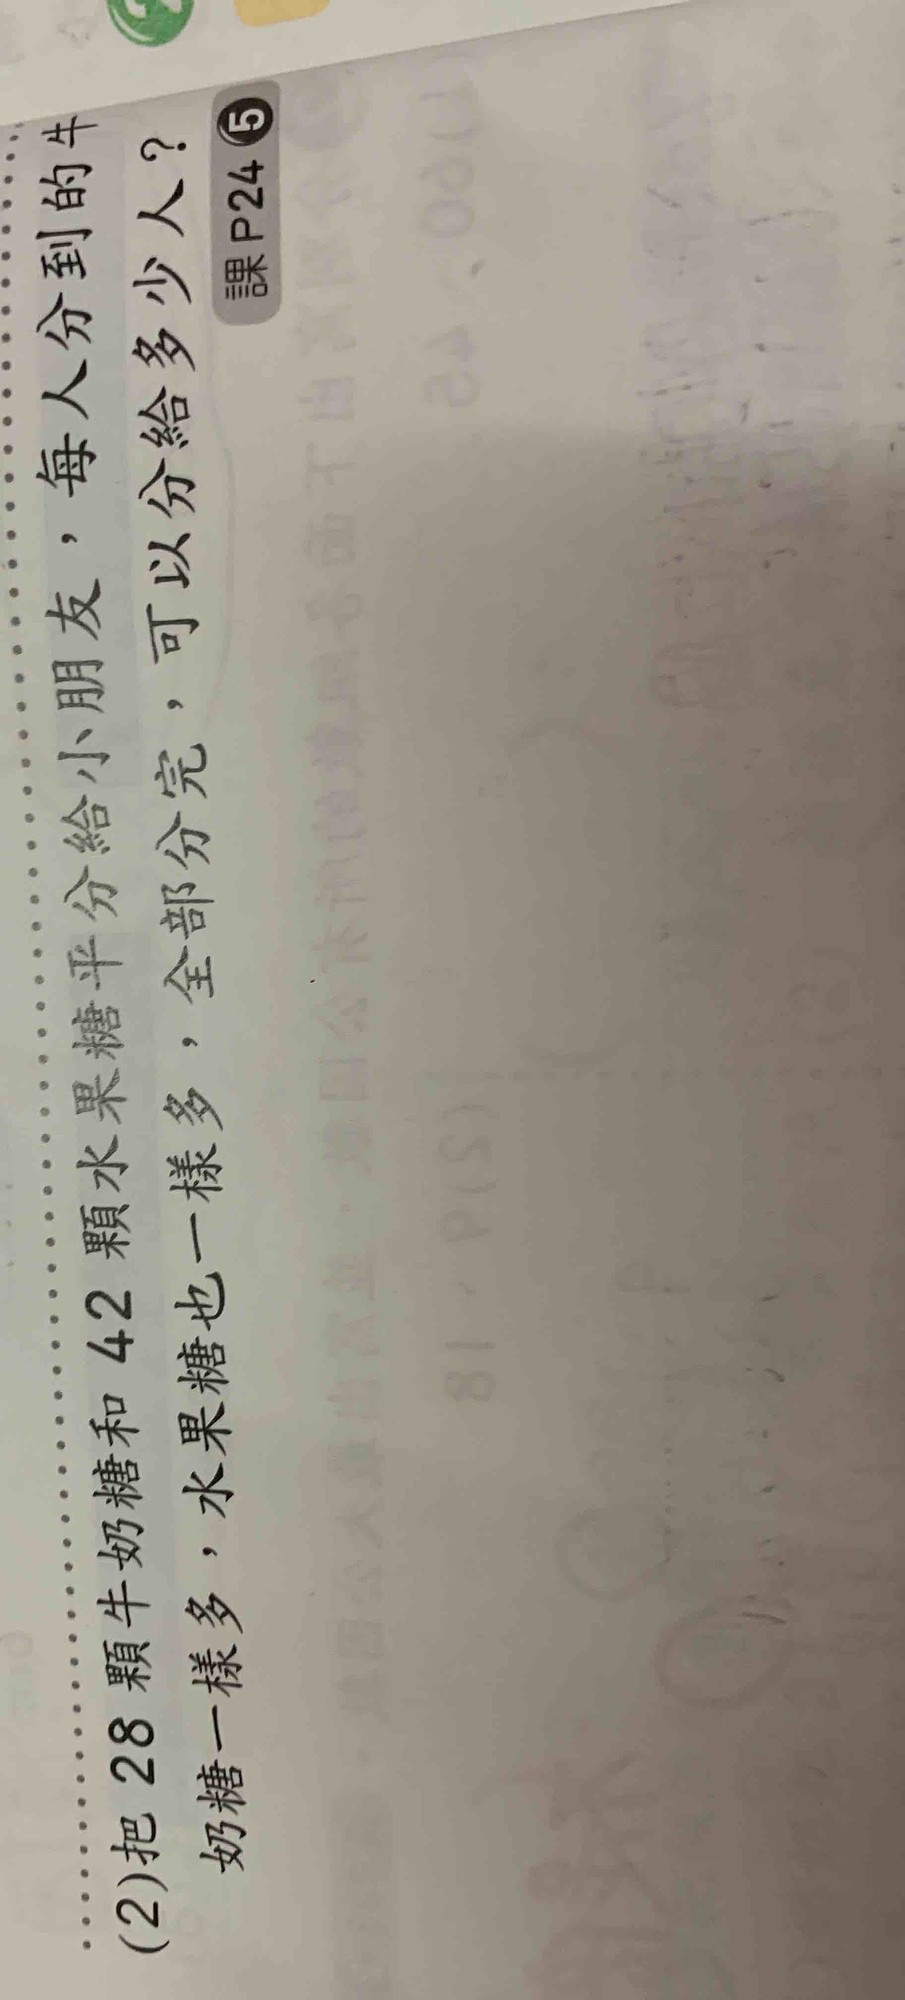 (2)把 28 顆牛奶糖和 42 顆水果糖平分給小朋友，每人分到的牛
奶糖一樣多，水果糖也一樣多，全部分完，可以分給多少人？
課P24 5